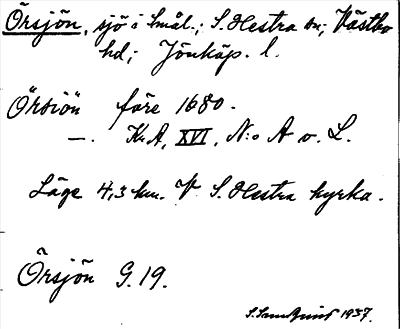 Örsjön, sjö i Smål.; S. Hestra sn; Västbo
hd; Jönköp. l.
Örsiön före 1680.
—. KrA, XVI, N:o A o. L.
Läge 4,3 km. V S. Hestra kyrka.
Örsjön G. 19.
S. Landqvist 1937.